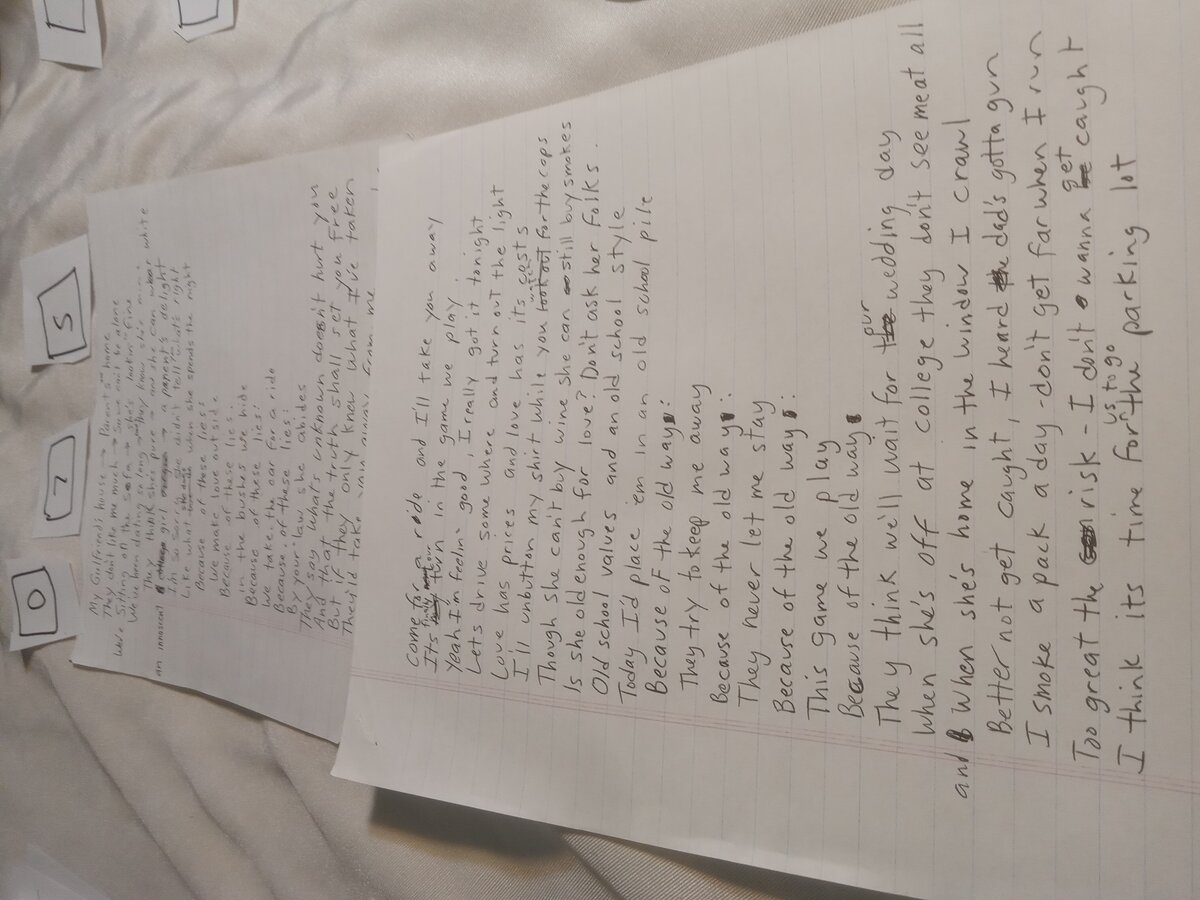 0
7
5
My Gurlfriends house → Parents home
They don't like me much → Some wont be alone
We're Sitting on the sofa → she's lookin' fine
We've been dating so long → they know she
They think she's pure → now she can wear white
an innocent girl a parent's delight
I'm so Sorry she didn't tell what's right
Like what when she spends the night
Because of these lies:
We make love outside
Because of these lies:
in the bushes we hide
Because of these lies:
We take the car for a ride
Because of these lies:
By your law she abides
They say what's unknown doesn't hurt you
And that the truth shall set you free
But if they only knew what I've taken
They'd take away from me
come for a ride and I'll take you away
Its finally turn in the game we play.
Yeah I'm feelin' good, I really got it tonight
Lets drive some where and turn out the light
Love has prices and love has its costs
I'll unbutton my shirt while you watch for the cops
Though she can't by wine she can still buy smokes
Is she old enough for love? Don't ask her folks.
Old school values and an old school style
Today I'd place 'em in an old school pile
Because of the old ways:
They try to keep me away
Because of the old ways:
They never let me stay
Because of the old ways:
This game we play
Because of the old ways
They think we'll wait for our wedding day
When she's off at college they don't see me at all
and When she's home in the window I crawl
Better not get caught, I heard dad's gotta gun
I smoke a pack a day - don't get far when I run
Too great the risk - I don't wanna get caught
I think its time for us to go the parking lot